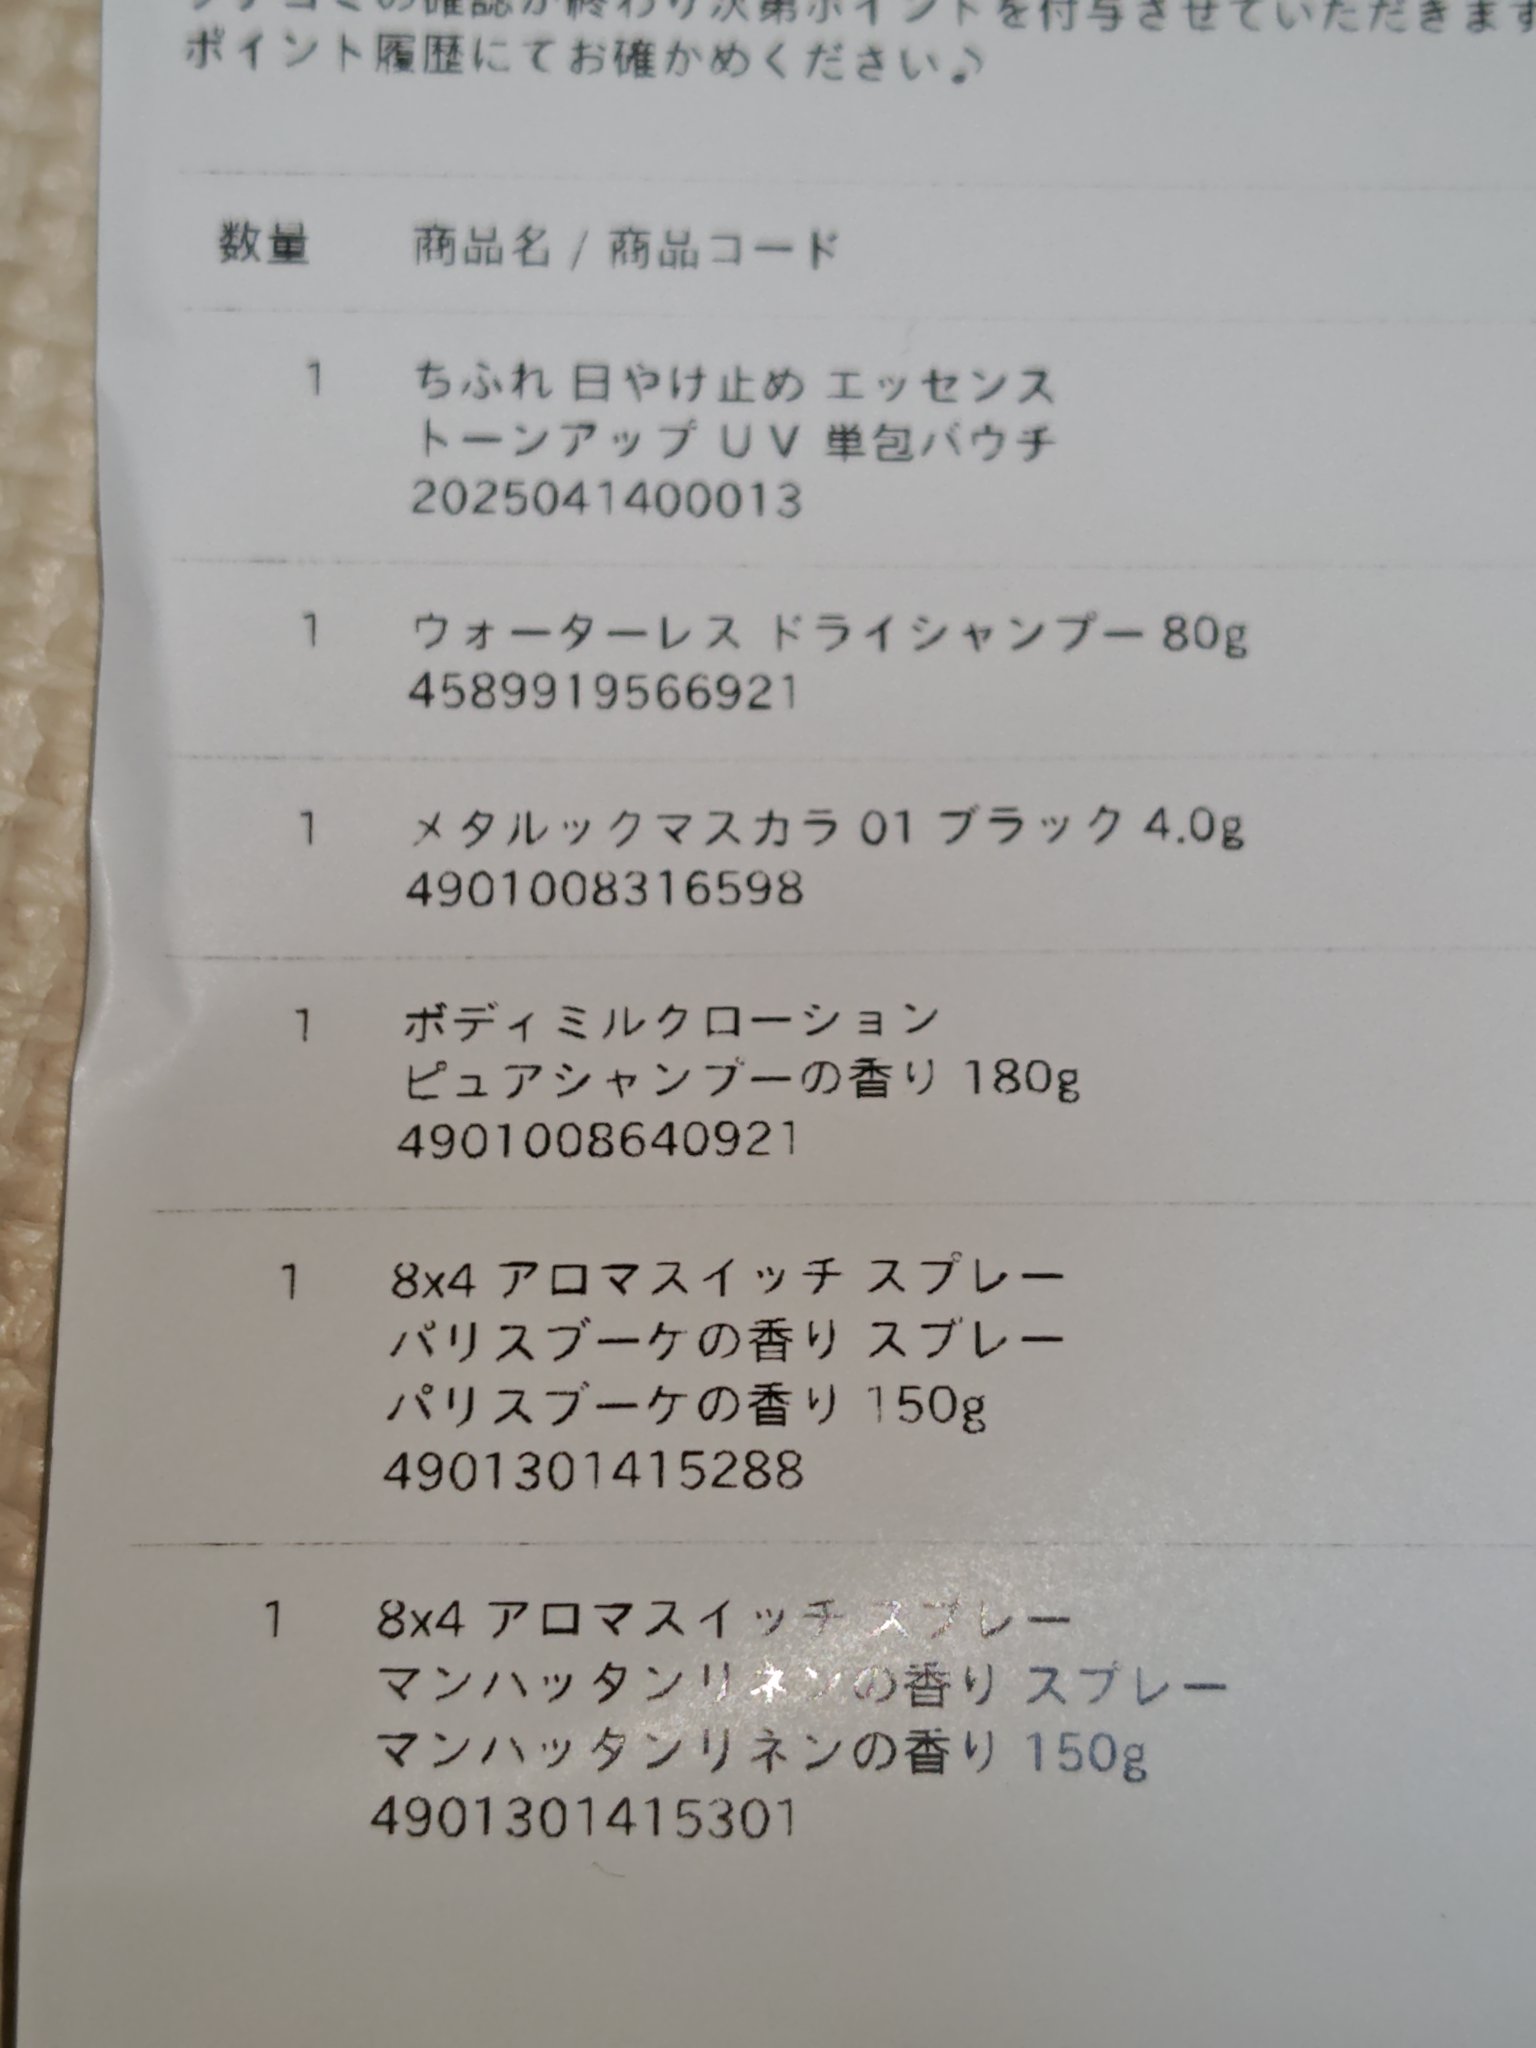 クチコミの確認が終わり次第ポイントを付与させていただきます
ポイント履歴にてお確かめください♪
数量 商品名 / 商品コード
1 ちふれ 日やけ止め エッセンス
トーンアップ UV 単包パウチ
2025041400013
1 ウォーターレス ドライシャンプー 80g
4589919566921
1 メタルックマスカラ 01 ブラック 4.0g
4901008316598
1 ボディミルクローション
ピュアシャンプーの香り 180g
4901008640921
1 8x4 アロマスイッチ スプレー
パリスブーケの香り スプレー
パリスブーケの香り 150g
4901301415288
1 8x4 アロマスイッチ スプレー
マンハッタンリネンの香り スプレー
マンハッタンリネンの香り 150g
4901301415301